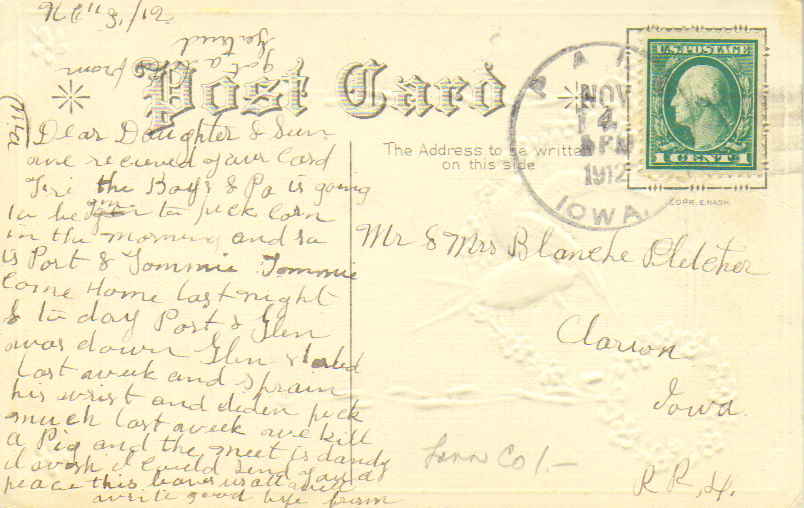 Post Card
The Address to be written
on this side
U.S. POSTAGE
1 CENT 1
NOV
4
PM
1912
IOWA.
COPR. E. NASH
Dear Daughter & Sun
we recieved your Card
Fri the Boys & Pa is going
to be gin to pick Corn
in the morning and so
is Port & Tommie Tommie
Come Home last night
& to day Port & Glen
was down Glen started
last week and sprain
his wrist and diden pick
much last week we kill
a Pig and the meet is dandy
I wish I Could send you a
peace this leaves us all well
write good bye from
Ma
got a
from
Mr & Mrs Blanche Pletcher
Clarion
Iowa.
R R, 4.
Linn Co 1.-